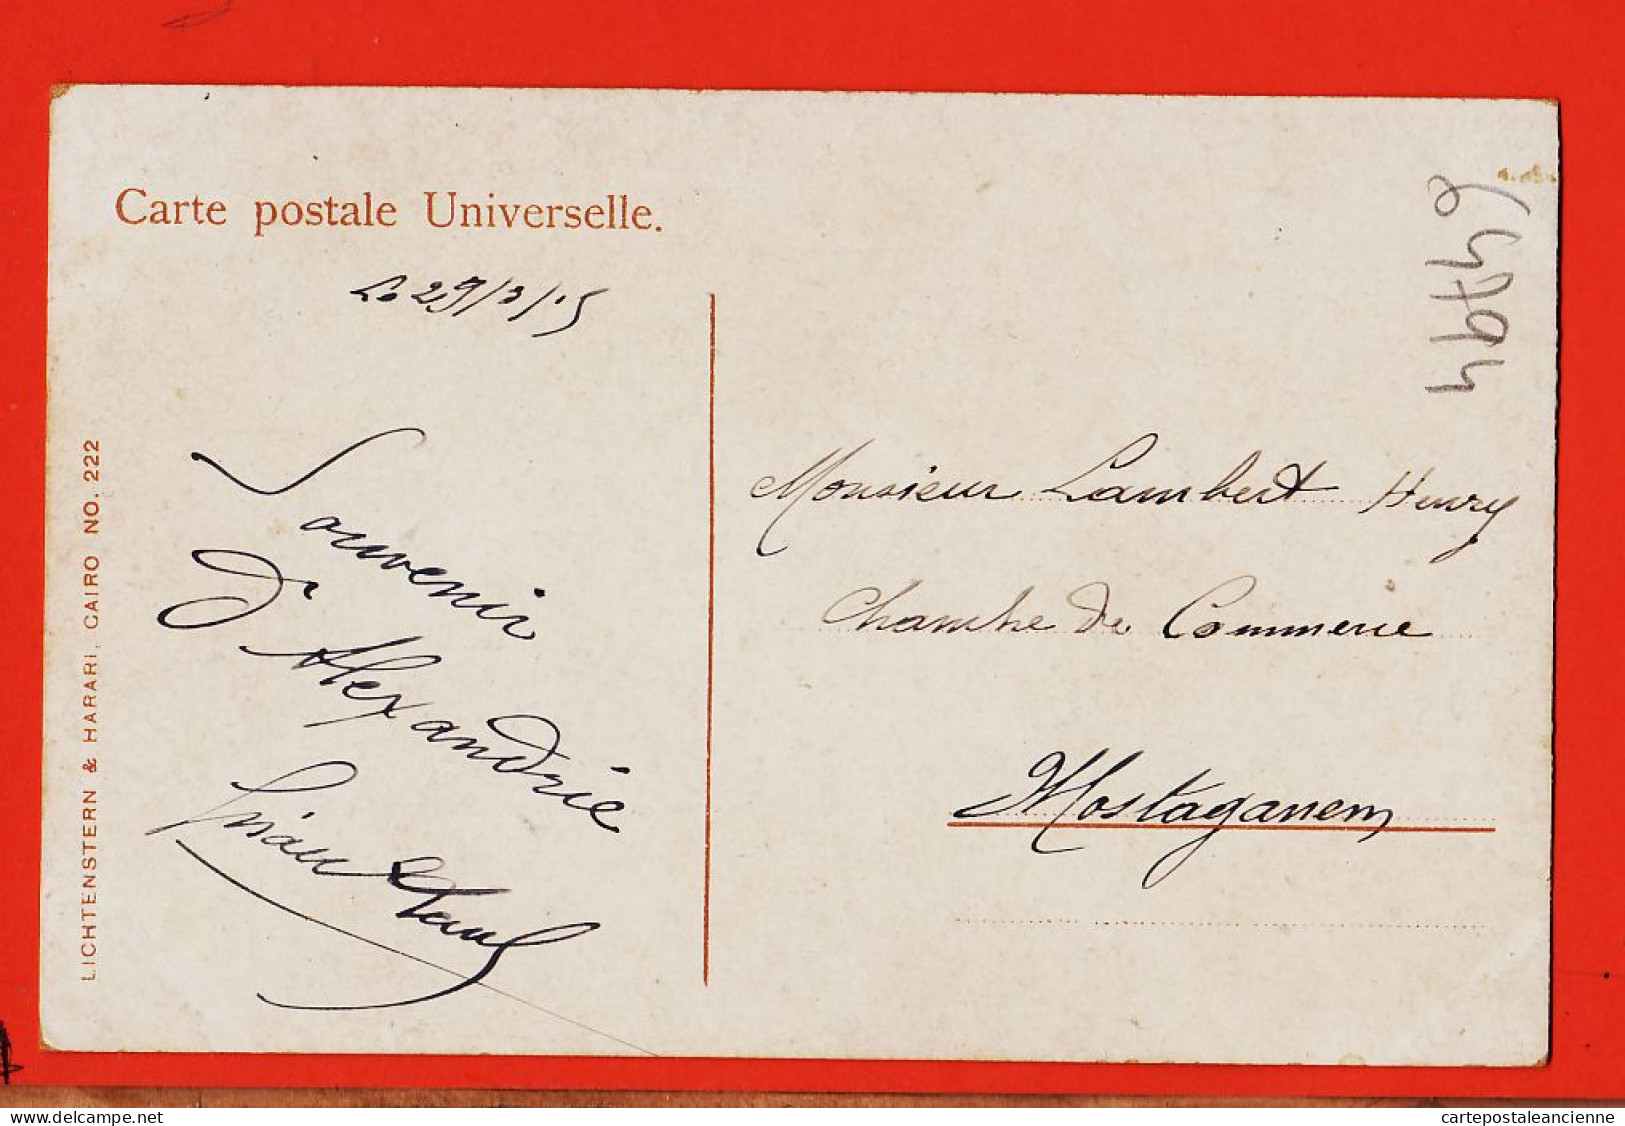 Carte postale Universelle.
Le 29/3/15
Souvenir
D'Alexandrie
LICHTENSTERN & HARARI, CAIRO NO. 222
64794
Monsieur Lambert Henry
Chambre de Commerce
Mostaganem
delcampe.net
cartepostaleancienne